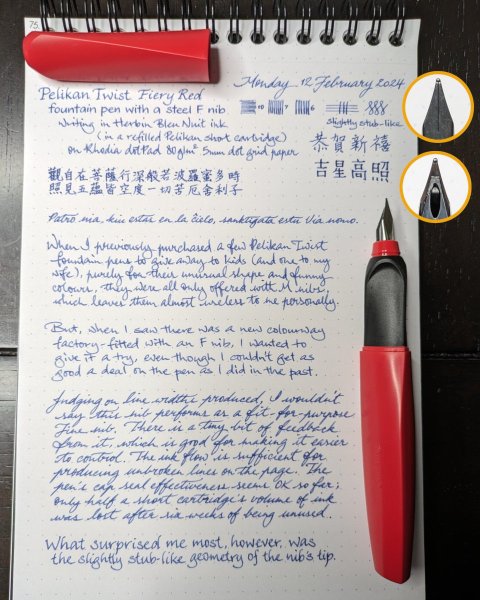 75.
Monday, 12 February 2024
Pelikan Twist Fiery Red
fountain pen with a steel F nib
Writing in Herbin Bleu Nuit ink
(in a refilled Pelikan short cartridge)
on Rhodia dotPad 80g/m² 5mm dot grid paper
×10
×7
×6
slightly stub-like
恭賀新禧
吉星高照
觀自在菩薩行深般若波羅蜜多時
照見五蘊皆空度一切苦厄舍利子
Patro nia, kiu estas en la ĉielo, sanktigata estu Via nomo.
When I previously purchased a few Pelikan Twist
fountain pens to give away to kids (and one to my
wife), purely for their unusual shape and funny
colours, they were all only offered with M nibs
which leaves them almost useless to me personally.
But, when I saw there was a new colourway
factory-fitted with an F nib, I wanted to
give it a try, even though I couldn't get as
good a deal on the pen as I did in the past.
Judging on line widths produced, I wouldn't
say this nib performs as a fit-for-purpose
Fine nib. There is a tiny bit of feedback
from it, which is good for making it easier
to control. The ink flow is sufficient for
producing unbroken lines on the page. The
pen's cap seal effectiveness seems OK so far;
only half a short cartridge's volume of ink
was lost after six weeks of being unused.
What surprised me most, however, was
the slightly stub-like geometry of the nib's tip.